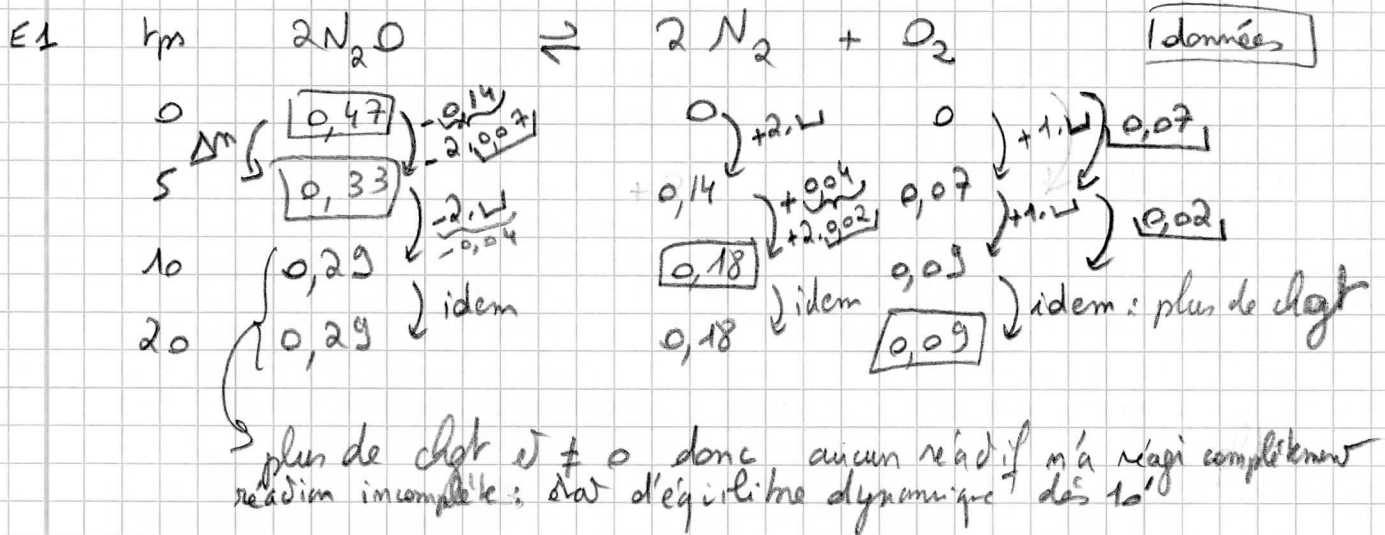 E1 tps 2N₂O ⇌ 2 N₂ + O₂ données
0 0,47 -0,14 0 +2. 0 +1. 0,07
Δn -2.0,07
5 0,33 0,14 +0,04 0,07 +1. 0,02
-2. -0,04 +2.0,02
10 0,29 0,18 0,09
idem idem idem : plus de chgt
20 0,29 0,18 0,09
plus de chgt et ≠ 0 donc aucun réactif n'a réagi complètement
réaction incomplète : état d'équilibre dynamique dès 10'